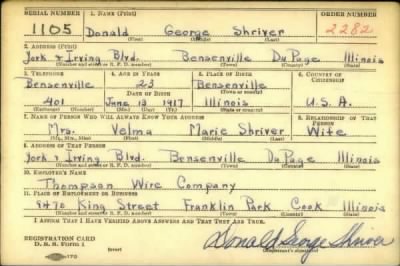 SERIAL NUMBER 1. NAME (Print) ORDER NUMBER
1105 Donald George Shriver 2282
(First) (Middle) (Last)
2. ADDRESS (Print)
York & Irving Blvd. Bensenville DuPage Illinois
(Number and street or R. F. D. number) (Town) (County) (State)
3. TELEPHONE 4. AGE IN YEARS 5. PLACE OF BIRTH 6. COUNTRY OF CITIZENSHIP
Bensenville 23 Bensenville
DATE OF BIRTH (Town or county)
401 June 13 1917 Illinois U.S.A.
(Exchange) (Number) (Mo.) (Day) (Yr.) (State or country)
7. NAME OF PERSON WHO WILL ALWAYS KNOW YOUR ADDRESS 8. RELATIONSHIP OF THAT PERSON
Mrs. Velma Marie Shriver Wife
(Mr., Mrs., Miss) (First) (Middle) (Last)
9. ADDRESS OF THAT PERSON
York & Irving Blvd. Bensenville DuPage Illinois
(Number and street or R. F. D. number) (Town) (County) (State)
10. EMPLOYER'S NAME
Thompson Wire Company
11. PLACE OF EMPLOYMENT OR BUSINESS
9470 King Street Franklin Park Cook Illinois
(Number and street or R. F. D. number) (Town) (County) (State)
I AFFIRM THAT I HAVE VERIFIED ABOVE ANSWERS AND THAT THEY ARE TRUE.
REGISTRATION CARD
D. S. S. FORM 1 (over) Donald George Shriver
(Registrant's signature)